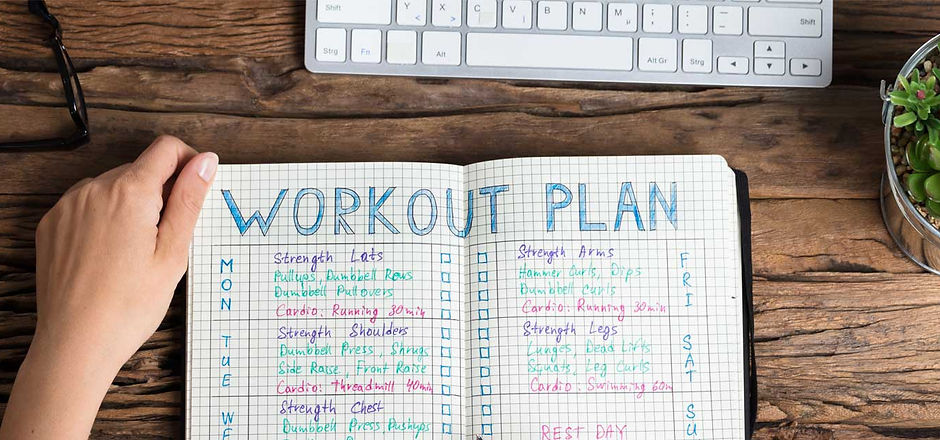 Shift Y X C V B N M ; : _ Shift
Strg Fn Alt Alt Gr Strg
WORKOUT PLAN
MON
Strength Lats
Pullups, Dumbbell Rows
Dumbbell Pullovers
Cardio: Running 30min
TUE
Strength Shoulders
Dumbbell Press, Shrugs
Side Raise, Front Raise
Cardio: Threadmill 40min
WE
Strength Chest
Dumbbell Press, Pushups
Strength Arms
Hammer Curls, Dips
Dumbbell Curls
Cardio: Running 30min
FRI
Strength Legs
Lunges, Dead Lifts
Squats, Leg Curls
Cardio: Swimming 60m
SAT
REST DAY
SU